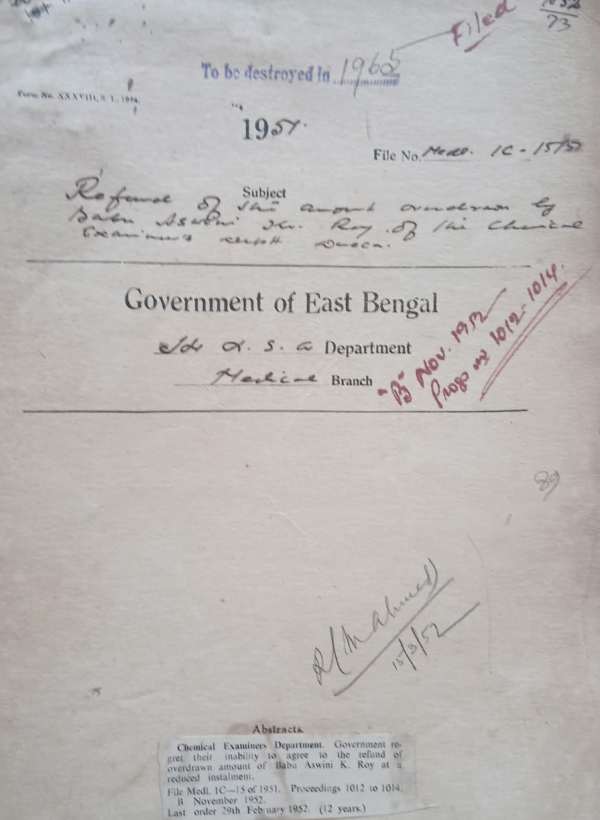 Filed
73
To be destroyed in 1965
Form No. XXXVIII, S. L., 1894.
1951.
File No. Medl. 1C-15/51
Subject
Refund of the amount overdrawn by
Babu Aswini Kr. Roy of the Chemical
Examiner's deptt Dacca.
Government of East Bengal
Department
Medical Branch
"B" Nov. 1952
Progs nos 1012-1014.
89
15/3/52
Abstracts.
Chemical Examiners Department. Government re-
gret their inability to agree to the refund of
overdrawn amount of Babu Aswini K. Roy at a
reduced instalment.
File Medl. 1C—15 of 1951. Proceedings 1012 to 1014.
B November 1952.
Last order 29th February 1952. (12 years.)